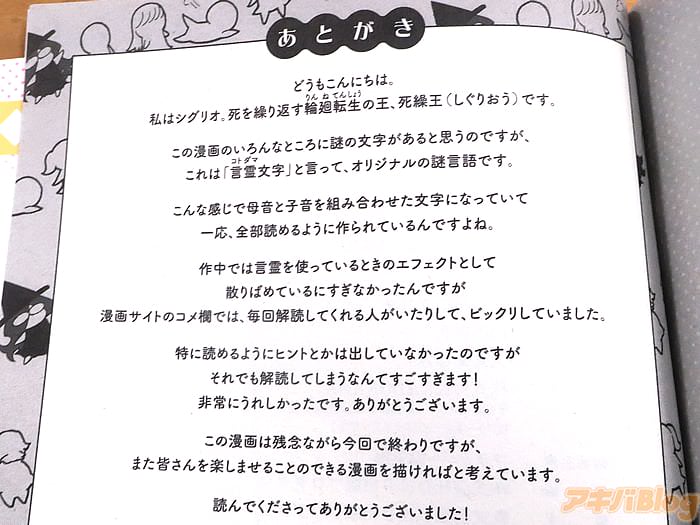 あとがき
どうもこんにちは。
私はシグリオ。死を繰り返す輪廻転生の王、死繰王(しぐりおう)です。
りんねてんしょう
この漫画のいろんなところに謎の文字があると思うのですが、
これは「言霊文字」と言って、オリジナルの謎言語です。
コトダマ
こんな感じで母音と子音を組み合わせた文字になっていて
一応、全部読めるように作られているんですよね。
作中では言霊を使っているときのエフェクトとして
散りばめているにすぎなかったんですが
漫画サイトのコメ欄では、毎回解読してくれる人がいたりして、ビックリしていました。
特に読めるようにヒントとかは出していなかったのですが
それでも解読してしまうなんてすごすぎます!
非常にうれしかったです。ありがとうございます。
この漫画は残念ながら今回で終わりですが、
また皆さんを楽しませることのできる漫画を描ければと考えています。
読んでくださってありがとうございました!
アキバBlog